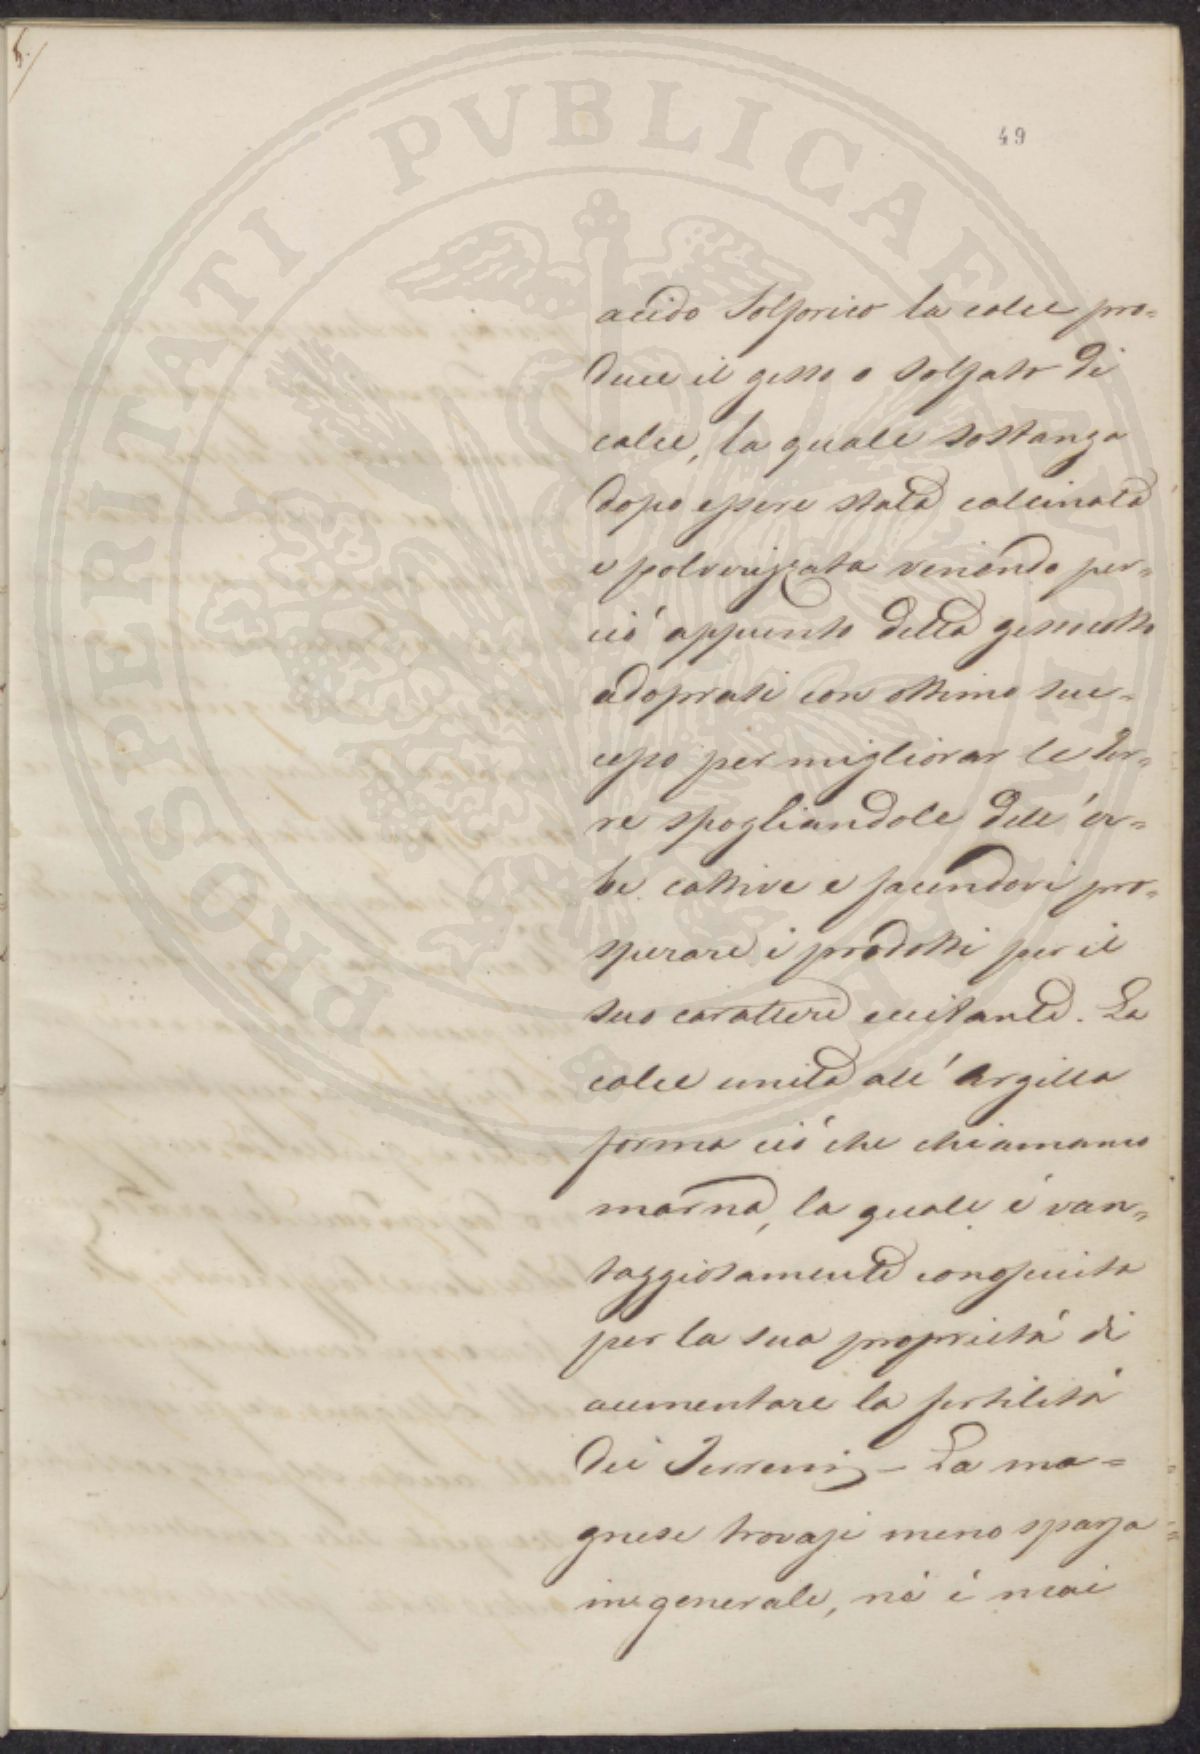 5.
49
PROSPERITATI PVBLICAE AVGENDAE
acido Solforico la calce pro=
duce il gesso o Solfato di
calce, la quale sostanza
dopo essere stata calcinata
e polverizzata venendo per=
ció appunto detta gesso cotto
adoprasi con ottimo suc=
cesso per migliorar le ter=
re spogliandole dell'er=
be cattive e facendovi pro=
sperare i prodotti per il
suo carattere eccitante. La
calce unita all'Argilla
forma ció che chiamamo
marna, la quale é van=
taggiosamente conosciuta
per la sua proprietá di
aumentare la fertilitá
dei Terreni – La ma=
gnese trovasi meno sparsa
in generale, né é mai